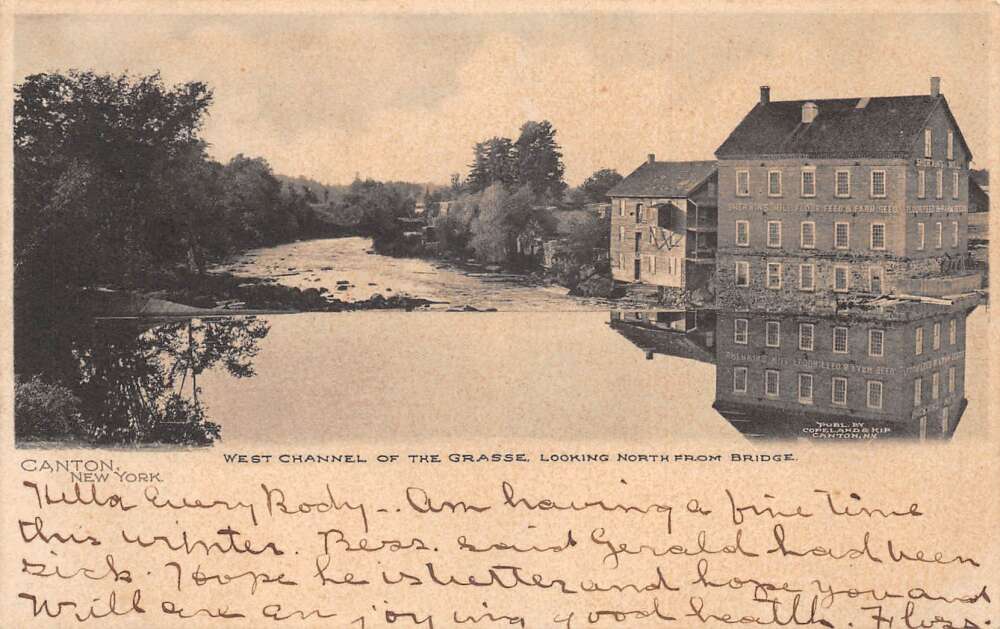 SHERKINS MILL FLOUR FEED & FARM SEED
PUBL. BY
COPELAND & KIP
CANTON, N.Y.
CANTON,
NEW YORK.
WEST CHANNEL OF THE GRASSE, LOOKING NORTH FROM BRIDGE.
Hello Every Body - . Am having a fine time
this winter. Bess. said Gerald had been
sick. Hope he is better and hope you and
Will are en joying good health. Floss.